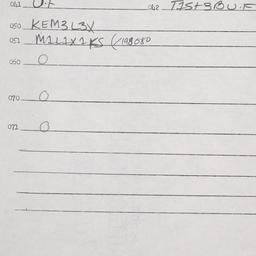 041 U.F 042 TJSt3BU.F
050 KEM3L3X
051 M1L1X1KS (/198080
060 O
070 O
072 O